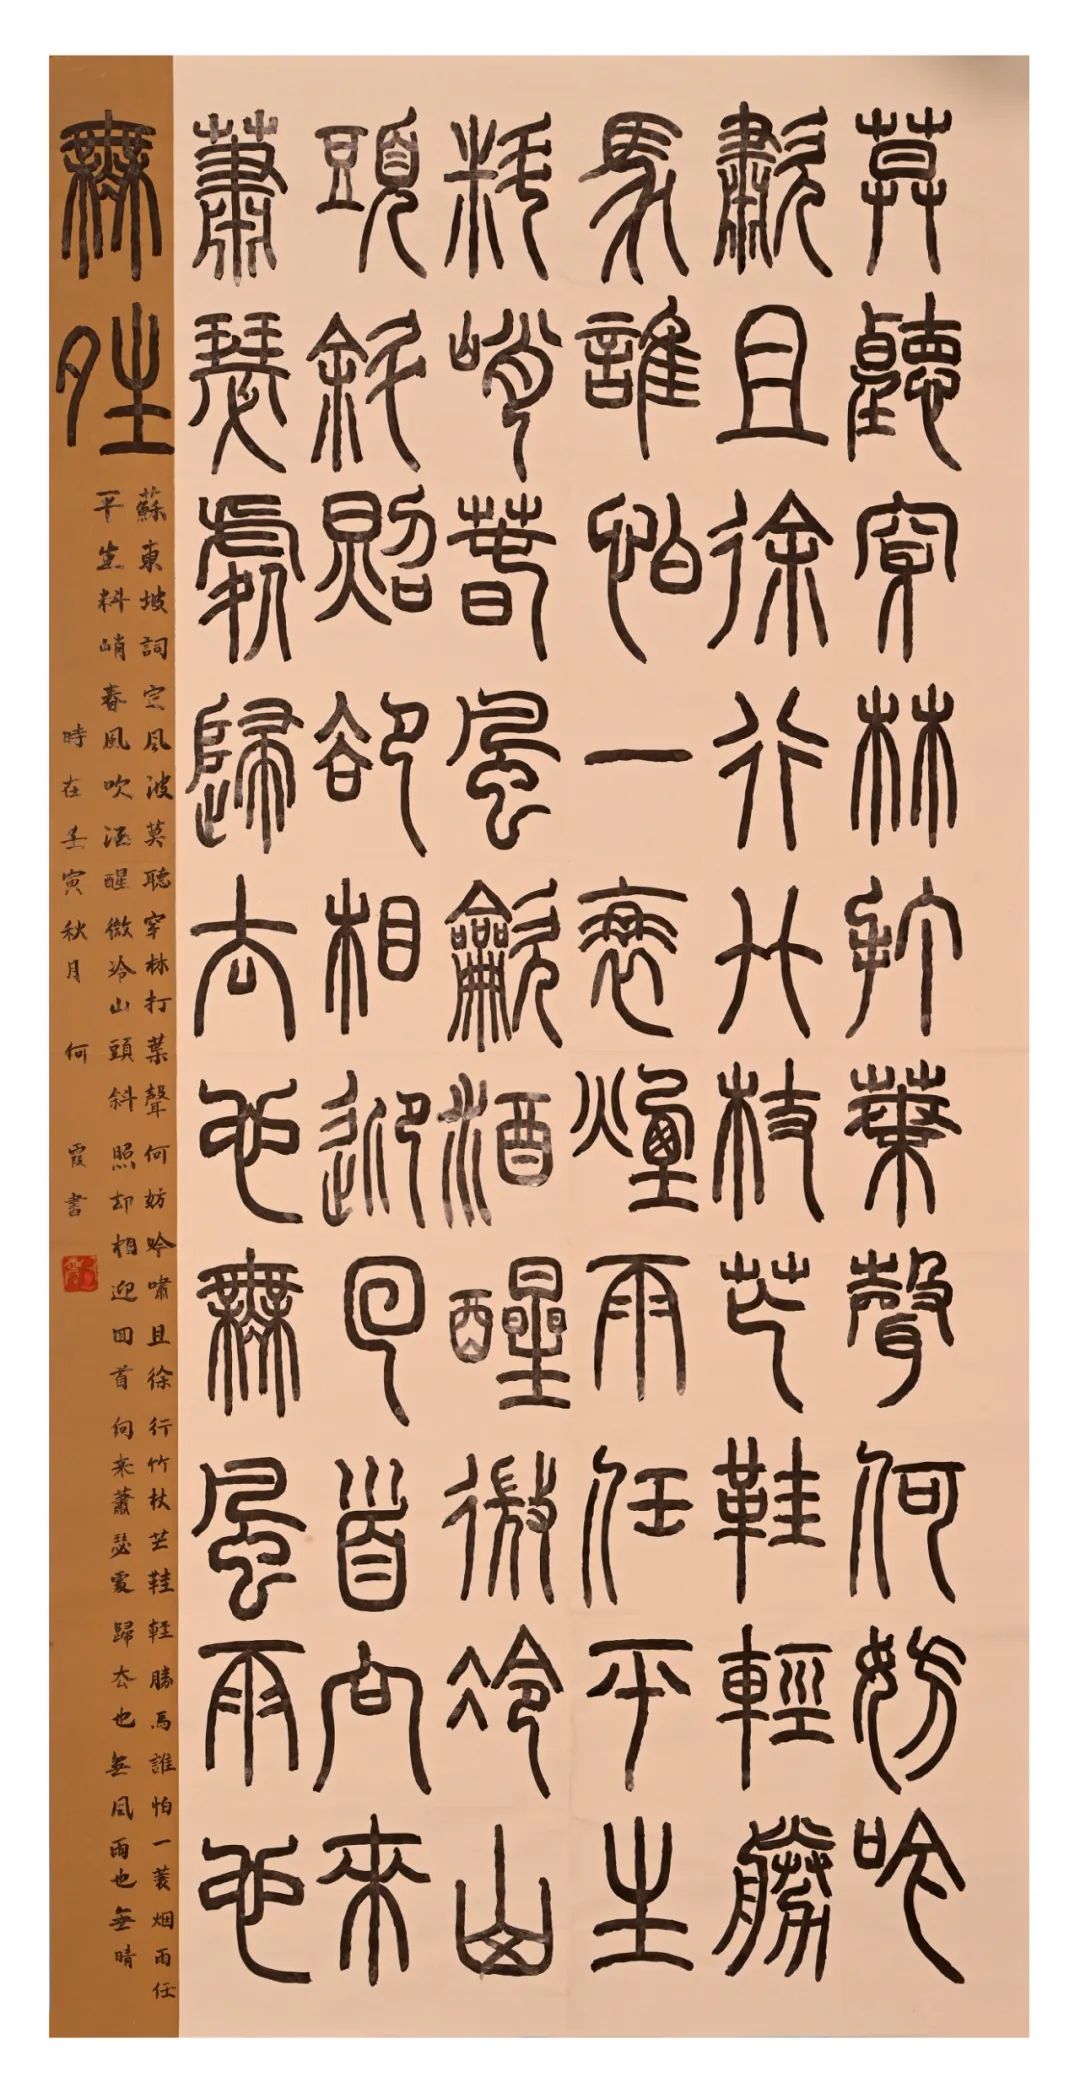 莫聽穿林打葉聲何妨吟
歗且徐行竹枝芒鞋輕勝
馬誰怕一蓑煙雨任平生
料峭春風龡酒醒微冷山
頭斜照卻相迎回首向來
蕭瑟處歸去也無風雨也
無姓
蘇東坡詞定風波莫聽穿林打葉聲何妨吟嘯且徐行竹杖芒鞋輕勝馬誰怕一蓑烟雨任
平生料峭春風吹酒醒微冷山頭斜照却相迎回首向来蕭瑟處歸去也無風雨也無晴
時在壬寅秋月何霞書